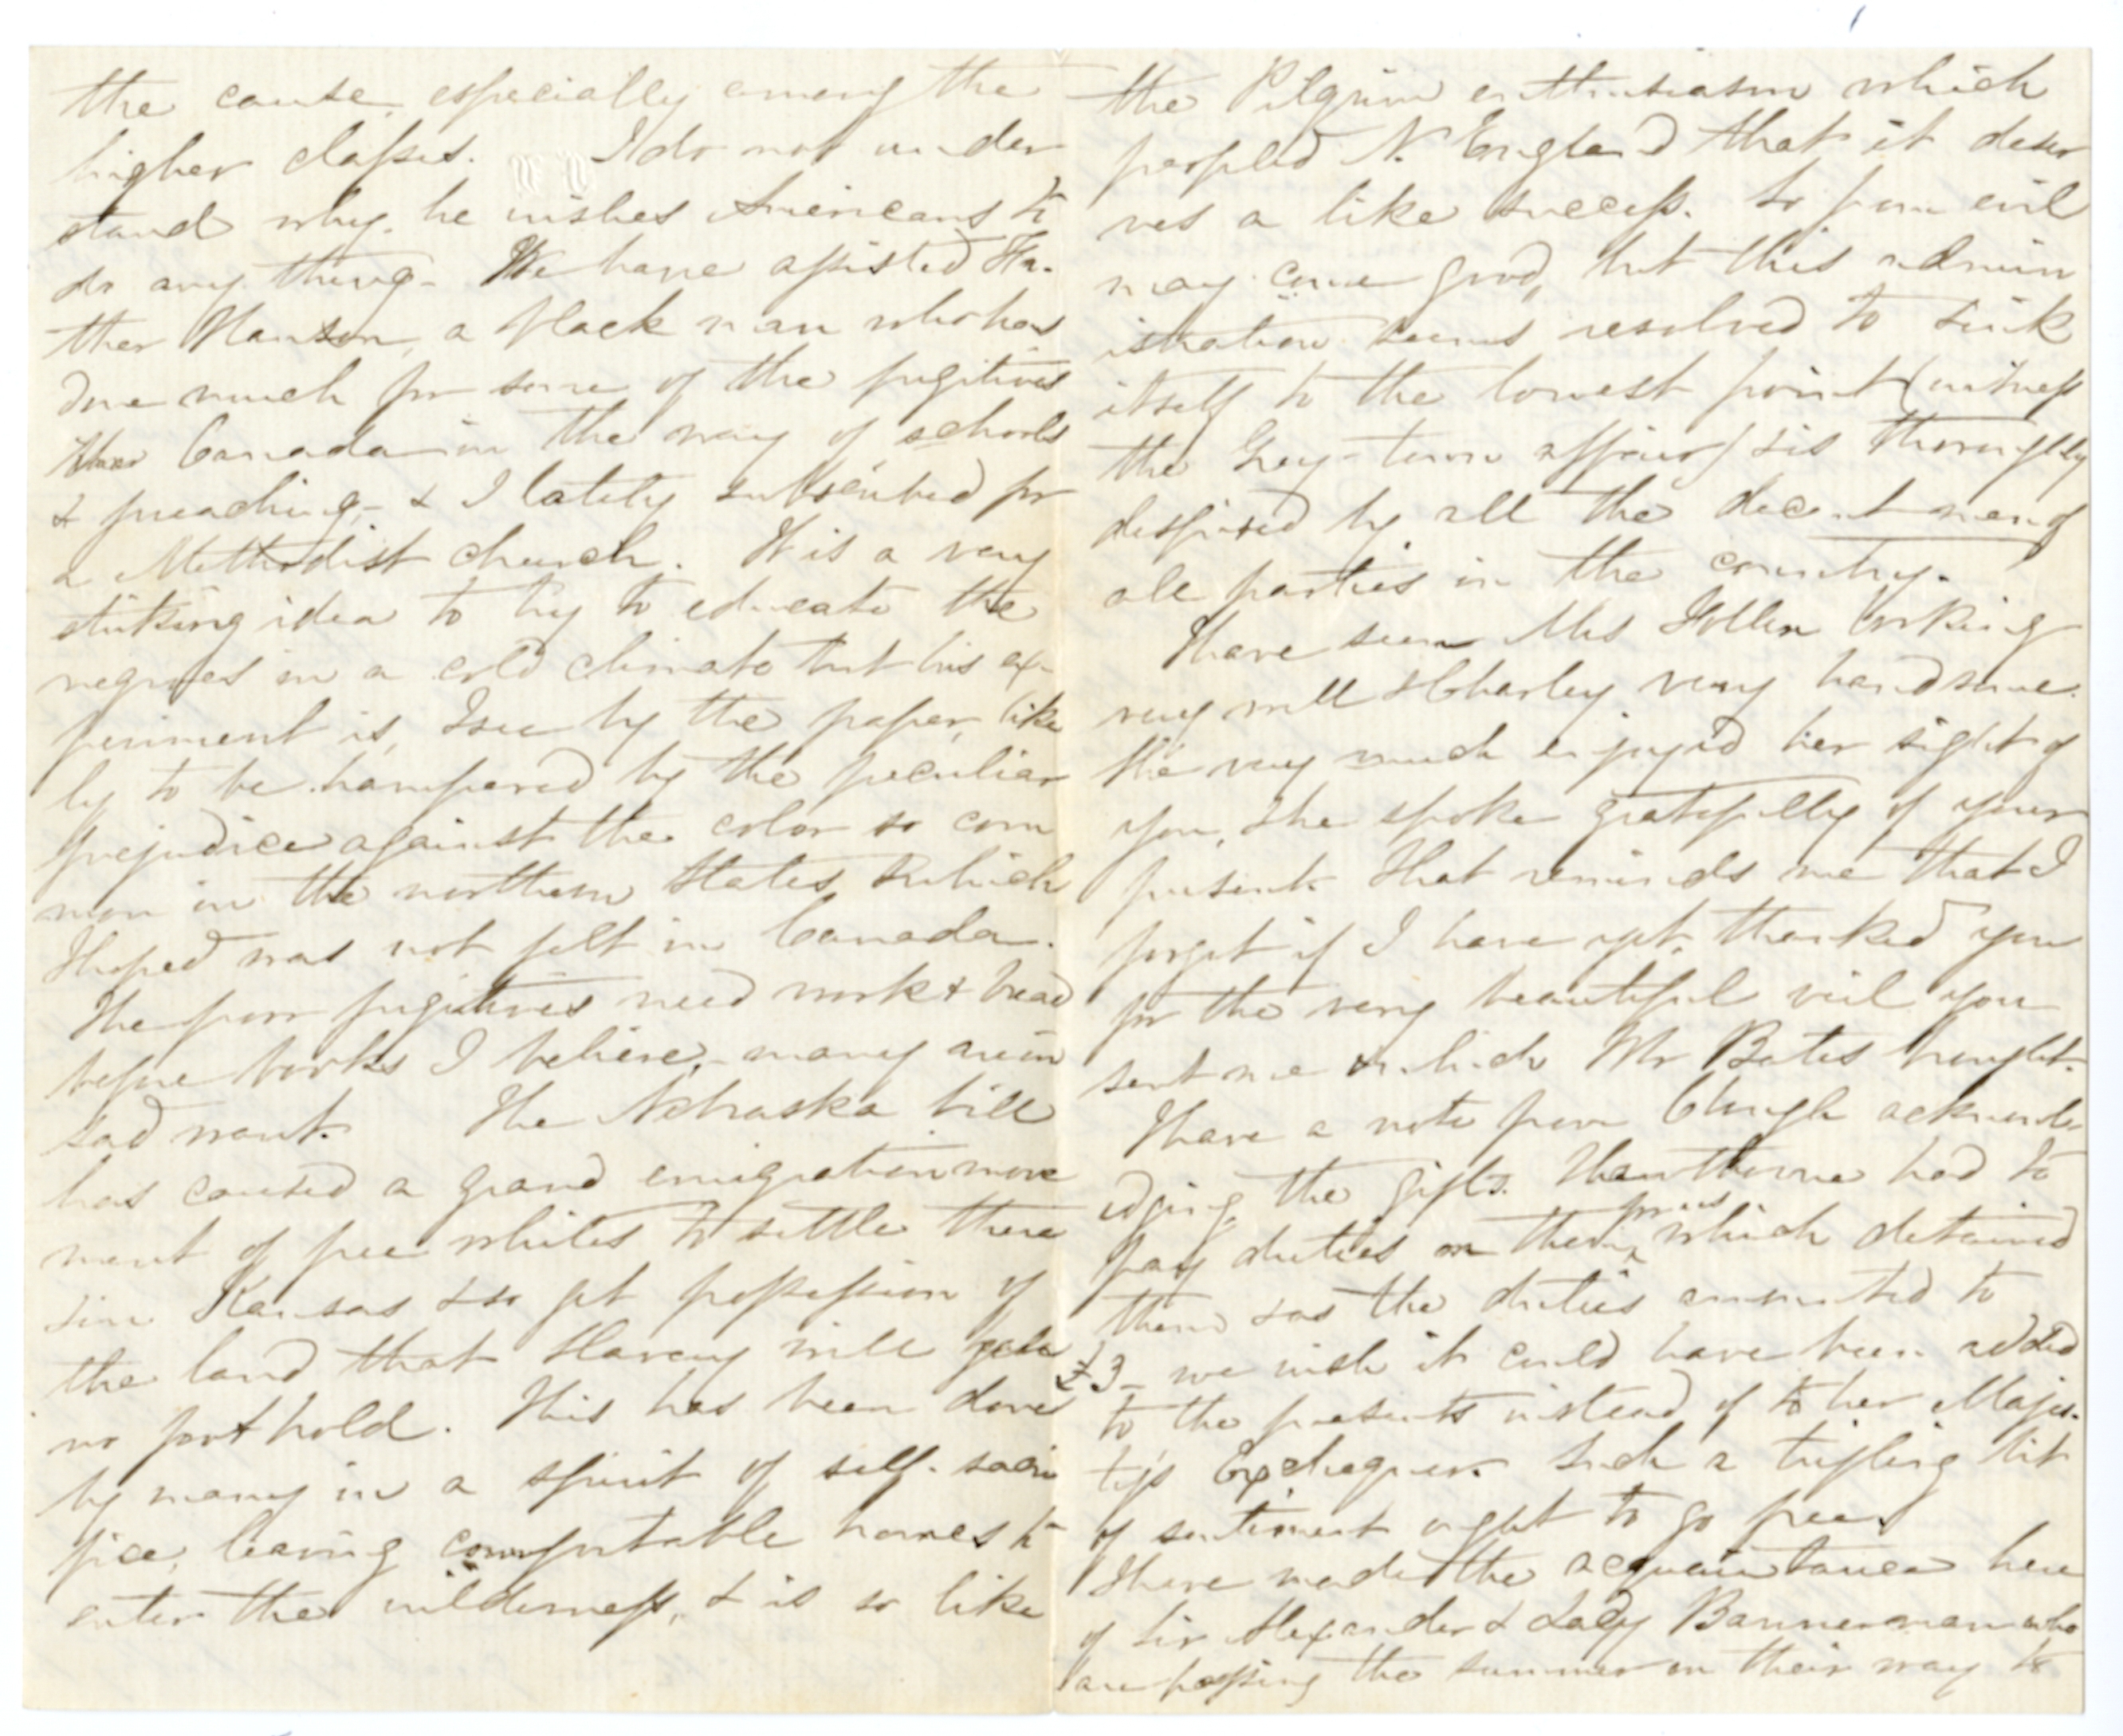 the cause especially among the
higher classes. I do not under
stand why he wishes Americans to
do any thing - We have assisted Fa-
ther Hanson, a black man who has
done much for some of the fugitives
Canada in the way of schools
& preaching, - & I lately subscribed for
a Methodist church. It is a very
striking idea to try to educate the
negroes in a cold climate but his ex-
periment is, I see by the paper, like
ly to be hampered by the peculiar
prejudice against the color so com
mon in the northern States, & which
I hoped was not felt in Canada.
The poor fugitives need work & bread
before books I believe, - many are in
sad want. The Nebraska bill
has caused a grand emigration move
ment of free whites to settle there
& in Kansas & so get possession of
the land that Slavery will gain
no foothold. This has been done
by many in a spirit of self-sacri
fice, leaving comfortable homes to
enter the wilderness, & is so like
the Pilgrim enthusiasm which
peopled N. England that it deser
ves a like success. So from evil
may come good, but this admin
istration seems resolved to sink
itself to the lowest point (witness
the Grey-town affair) & is thoroughly
despised by all the decent men of
all parties in the country.
I have seen Mrs Follen looking
very well & Charley very handsome.
She very much enjoyed her sight of
you, she spoke gratefully of your
present. That reminds me that I
forget if I have yet thanked you
for the very beautiful veil you
sent me which Mr Bates brought.
I have a note from Clough acknowl
edging the gifts. Hawthorne had to
pay duties on them which detained
them & as the duties amounted to
£3 - we wish it could have been added
to the presents instead of to her Majes-
ty's Exchequer. Such a trifling bit
of sentiment ought to go free.
I have made the acquaintance here
of Sir Alexander & Lady Bannerman who
are passing the summer on their way to